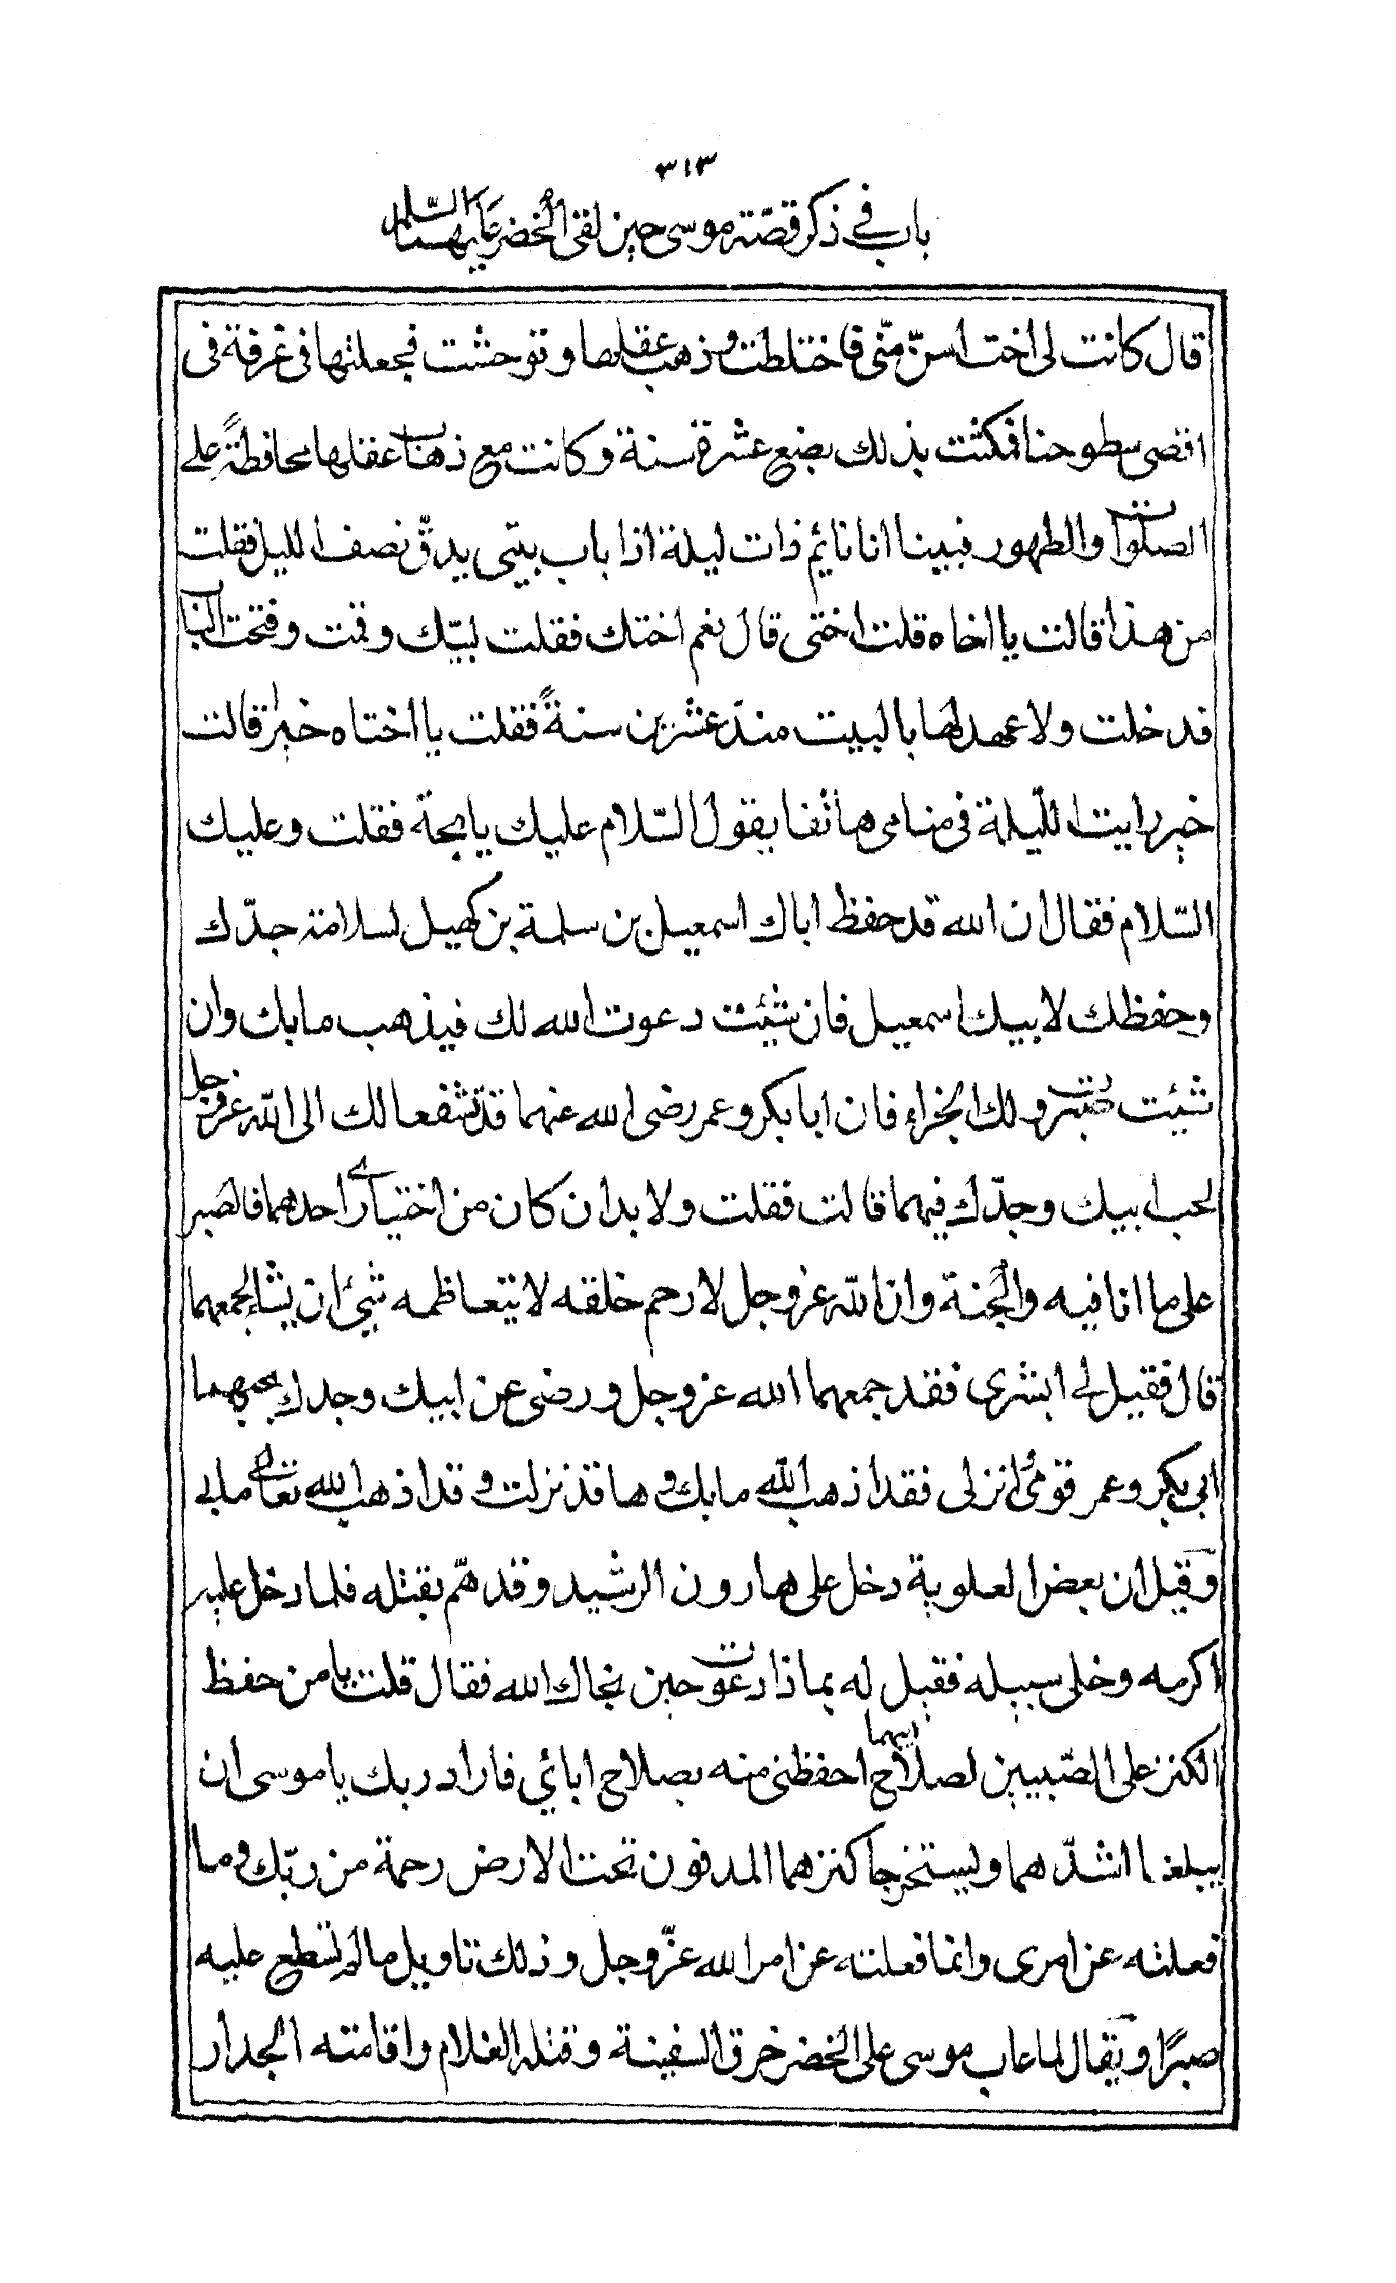 ٣١٣
باب في ذكر قصّة موسى حين لقى الخضر عليهما السّلام
قال كانت لى اخت اسنّ منّى فاختلطت وذهب عقلها وتوحشت فجعلتها فى غرفة فى
اقصى سطوحنا فمكثت بذلك بضع عشرة سنة وكانت مع ذهاب عقلها محافظةً على
الصلوات والطهور فبينا انا نائم ذات ليلة اذا باب بيتى يدقّ نصف الليل فقلت
من هذا قالت يا اخاه قلت اختى قال نعم اختك فقلت لبيّك وقمت وفتحت الباب
فدخلت ولا عهد لها بالبيت منذ عشرين سنةً فقلت يا اختاه خيرا قالت
خير رايت اللّيلة فى منامى هاتفا يقول السّلام عليك يا بجة فقلت وعليك
السّلام فقال ان الله قد حفظ اباك اسمعيل بن سلمة بن كهيل لسلامة جدّك
وحفظك لابيك اسمعيل فان شئت دعوت الله لك فيذهب ما بك وان
شئت صبرت ولك الجزاء فان ابا بكر وعمر رضى الله عنهما قد تشفعا لك الى الله عز وجل
لحب ابيك وجدّك فيهما قالت فقلت ولا بد ان كان من اختيارى احدهما فالصبر
على ما انا فيه والجنة وان اللّه عز وجل لارحم خلقه لا يتعاظمه شئ ان يشاء لجمعهما
قال فقيل لى ابشرى فقد جمعهما الله عز وجل ورضى عن ابيك وجدك بحبهما
ابى بكر وعمر قومى انزلى فقد اذهب اللّه ما بك وها قد نزلت وقد اذهب الله تعالى ما بى
وقيل ان بعض العلوية دخل على هارون الرشيد وقد همّ بقتله فلما دخل عليه
اكرمه وخلى سبيله فقيل له بماذا دعوت حين نجاك الله فقال قلت يا من حفظ
الكنز على الصّبيين لصلاح ابيهما احفظنى منه بصلاح ابائي فاراد ربك يا موسى ان
يبلغا اشدّهما ويستخرجا كنزهما المدفون تحت الارض رحمة من ربّك وما
فعلته عن امرى وانما فعلته عن امر الله عزّ وجل وذلك تاويل ما لم تسطع عليه
صبرًا ويقال لما عاب موسى على الخضر خرق السفينة وقتله الغلام واقامته الجدار